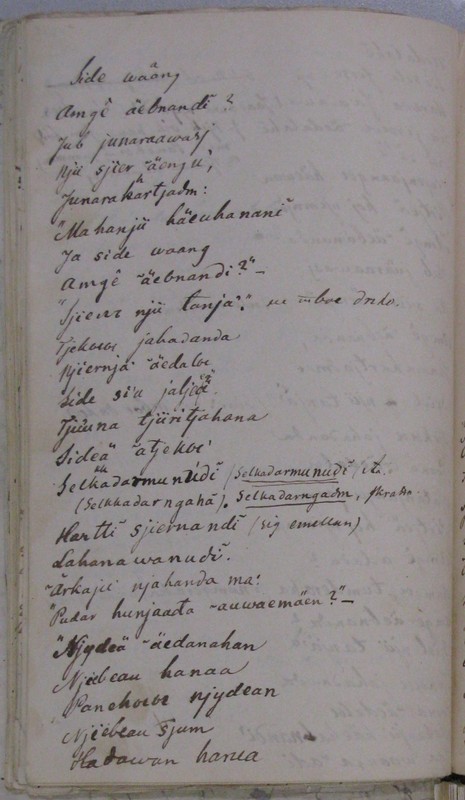 Side waäng
Amgê äebnandi?
Jub junaraawasj
njü sjier äenju,
Junarakartjadm:
"Mahanjü häeuhananî
Ja side waang
Amgê äebnandi?"–
"Sjiewe njü tanja"
Tjekowe jahadanda
Njiernja äedalwe
Side sia jaljeä".
Tjuuna tjüritjahana
Sideä atjekwe
Selkadarmunudi (Selkadarmunudi
(Selkkadarngahä). Selkadarngadm,
Hartti sjiernandi (sig emellan)
Lahanawanudi.
Ärkajü njahanda ma:
"Pudar hunjaata auwaemäen?"–
"Njydeä äedanahan
Njiebeau hanaa
Panehowe njydean
Njiebeau sjum
Hadawan hanea